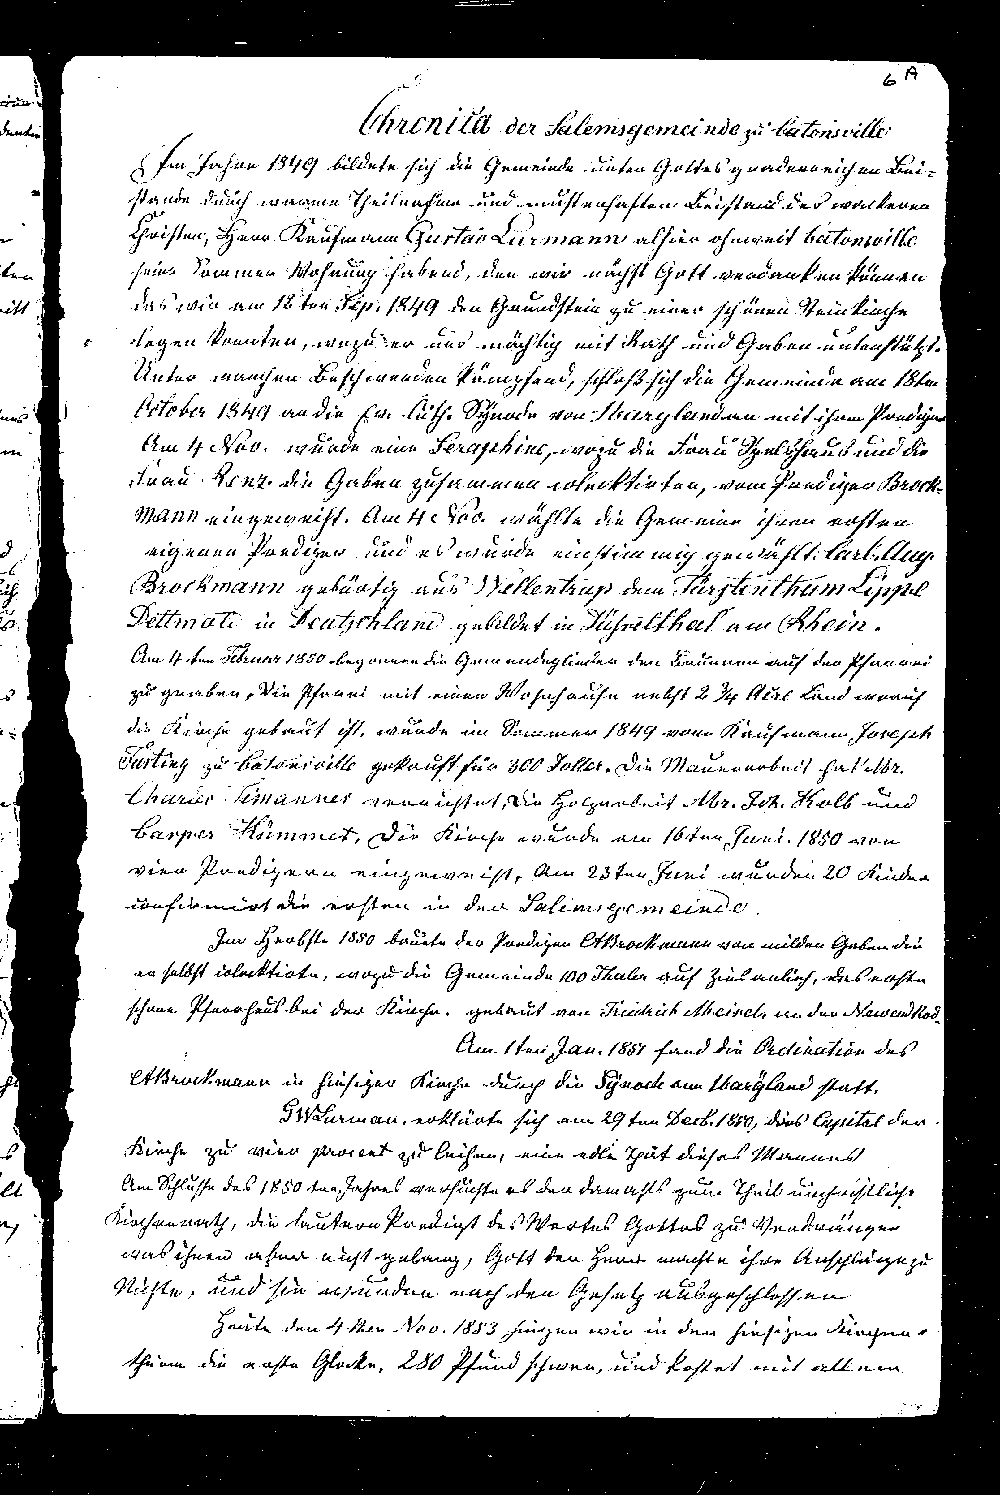 6 A
Chronica der Salemsgemeinde zu Catonsville
Im Jahre 1849 bildete sich die Gemeinde unter Gottes gnadenreichen Bei-
stande durch warme Theilnahme und musterhaften Beistand des wackeren
Christen, Herr Kaufmann Gustav Lurmann alhier ohnweit Catonsville
seine Sommer Wohnung habend, den wir nächst Gott verdanken können
das wir am 12ten Sep. 1849 den Grundstein zu einer schönen Steinkirche
legen konnten, wozu er uns mächtig mit Rath und Gaben unterstützt.
Unter manchen Beschwerden kämpfend, schloß sich die Gemeinde am 18ten
October 1849 an die Ev. Luth. Synode von Maryland an mit ihrem Prediger
Am 4 Nov. wurde eine Seraphine, wozu die Frau und die
Frau Renz. die Gaben zusammen colecktirten, vom Prediger Brock-
mann eingeweiht. Am 4 Nov. wählte die Gemeine ihren ersten
eigenen Prediger und es wurde einstimmig gewählt: Carl. Aug.
Brockmann gebürtig aus Wellentrup dem Fürstenthum Lippe
Dettmold in Deutschland gebildet in Düsselthal am Rhein.
Am 4ten Februar 1850 begonnen die Gemeindeglieder den Brunnen auf der Pfarrei
zu graben, Die Pfarrei mit einem Wohnhause nebst 2 3/4 Acre Land worauf
die Kirche gebaut ist, wurde im Sommer 1849 vom Kaufmann Joseph
Fusting zu Catonsville gekauft für 300 Doller. Die Mauerarbeit hat Mr.
Charles verrichtet, Die Holzarbeit Mr. Joh. Kolb und
Casper Kümmet, Die Kirche wurde am 16ten Juni. 1850 von
vier Predigern eingeweiht, Am 23ten Juni wurden 20 Kinder
confirmirt die ersten in der Salemsgemeinde.
Im Herbste 1850 bauete der Prediger CABrockmann von milden Gaben die
er selbst colecktirte, wozu die Gemeinde 100 Thaler auf Zins anlieh, das erste
schöne Pfarrhaus bei der Kirche. gebaut von Friedrich Meinel, an der
Am 1ten Jan. 1851 fand die Ordination des
CABrockmann in hiesiger Kirche durch die Synode von Maryland statt.
GWLurman, erklärte sich am 29ten Decb. 1850, dies Capital der
Kirche zu vier procent zu leihen, eine edle That dieses Mannes
Am Schlusse des 1850ten Jahres versuchte es der damahls zum Theil unchristliche
Kirchenrath, die lautere Predigt des Wortes Gottes zu Verdrängen
was ihnen aber nicht gelang, Gott der Herr machte ihre Anschläge zu
Nichte, und sie wurden nach dem Gesetz ausgeschlossen
Heute den 4ten Nov. 1853 hingen wir in den hiesigen Kirchen-
thurm die erste Glocke, 280 Pfund schwer, und kostet mit allem